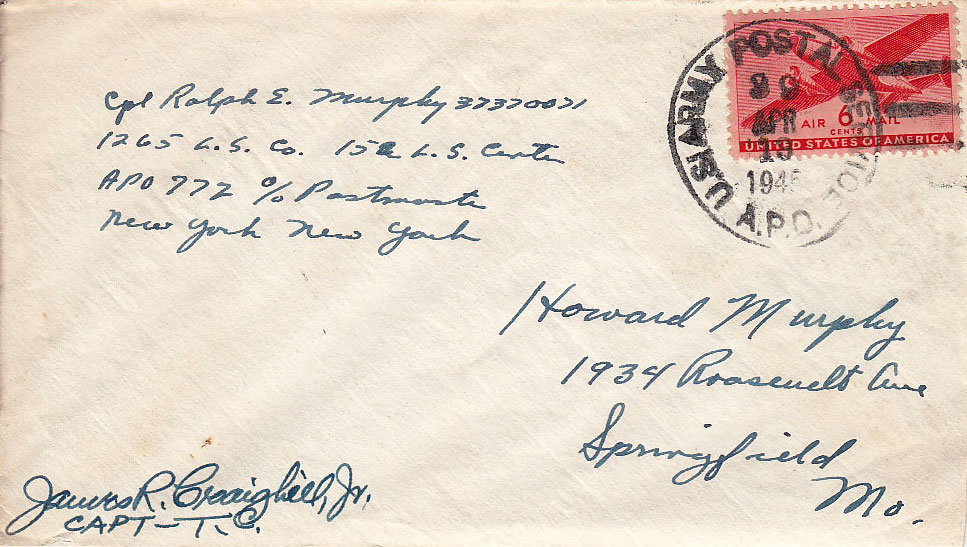 Cpl Ralph E. Murphy 37370071
1265 L.S. Co. 15 L.S. Center
APO 772 c/o Postmaster
New York New York
U.S. ARMY POSTAL SERVICE
APR
19
1945
A.P.O.
AIR 6 MAIL
CENTS
UNITED STATES OF AMERICA
Howard Murphy
1934 Roosevelt Ave
Springfield
Mo.
James R. Craighill, Jr.
CAPT-T.C.